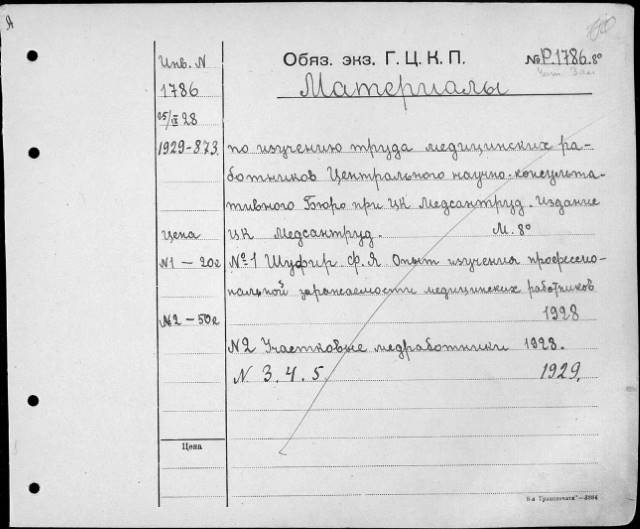 Обяз. экз. Г. Ц. К. П.
№Р.1786.8º
Чит. Зал
Материалы
Инв. N
1786
25/IX 28
1929-873
по изучению труда медицинских ра-
ботников Центрального научно-консульта-
тивного Бюро при ЦК Медсантруд. Издание
ЦК Медсантруд. М. 8º
Цена
№1 – 20к
№1 Шуфир Ф.Я Опыт изучения профессио-
нальной заражаемости медицинских работников
1928
№2 – 50к
N2 Участковые медработники 1928.
N 3. 4. 5. 1929.
Цена